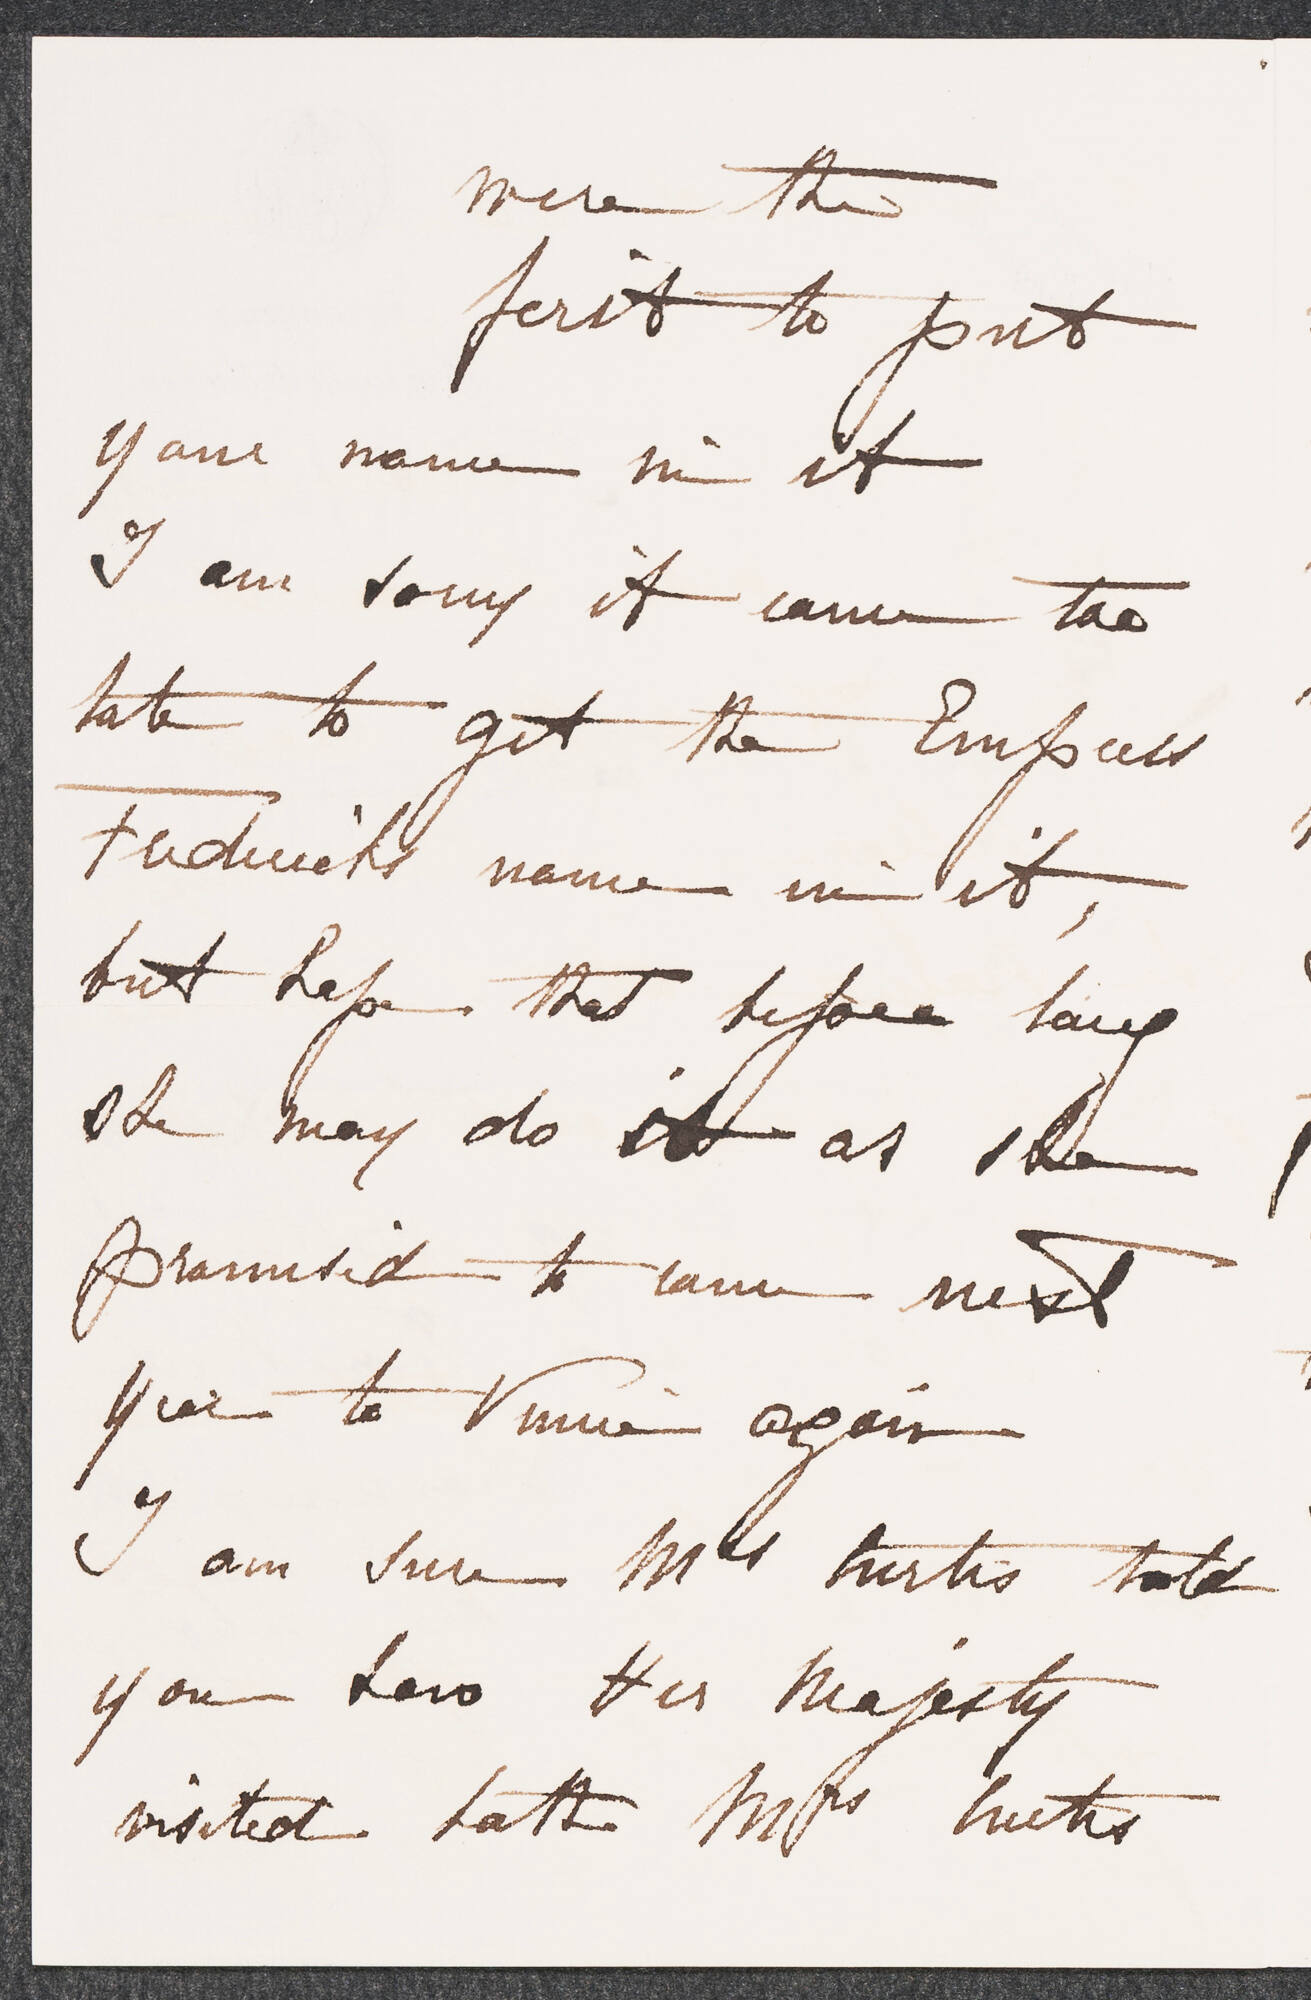 were the
first to put
your name in it
I am sorry it came too
late to get the Empress
Frederick's name in it,
but hope that before long
she may do it as she
promised to come next
year to Venice again
I am sure Mrs Curtis told
you how Her Majesty
visited both Mrs Curtis